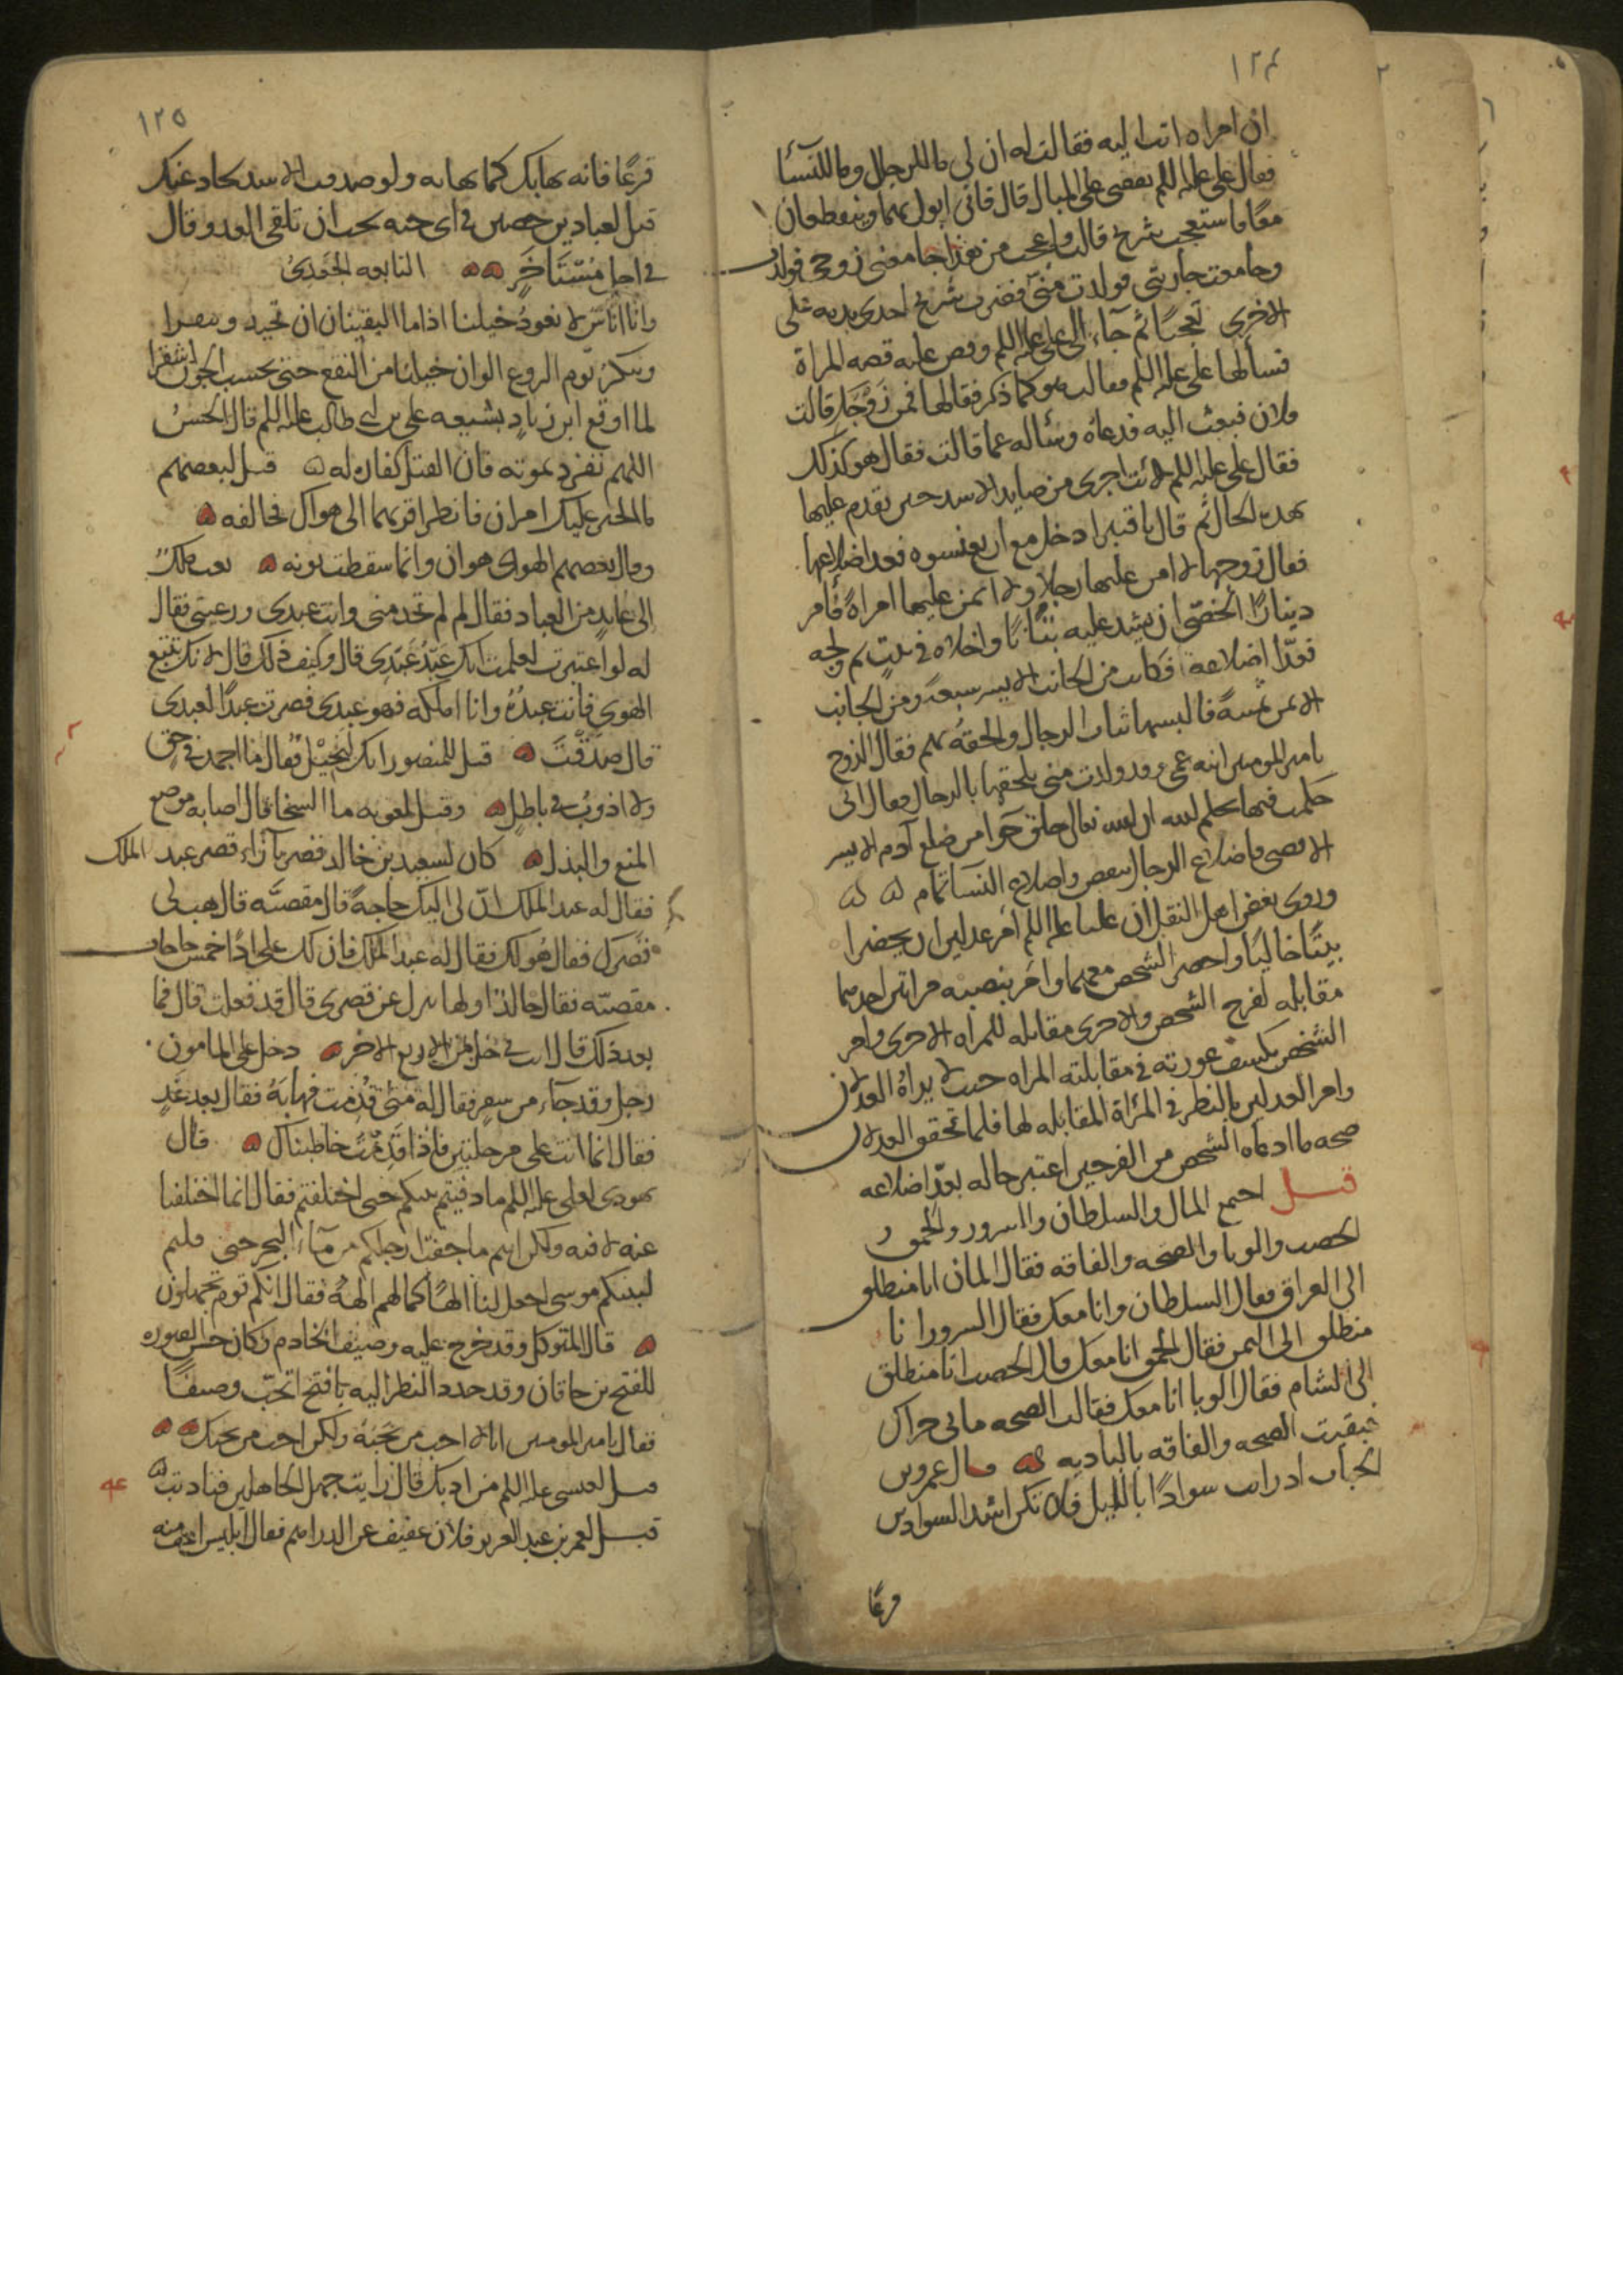 ١٢٤
ان امراه اتت اليه فقالت له ان لى ما للرجال وما للنسآء
فقال على عليه السلم يقضى على المبال قال فانى ابول بهما وينقطعان
معًا فاستعجب شريح قالت واعجب من هذا جامعنى زوجى فولدت
وجامعت جاريتى فولدت منى فضرب شريح احدى يديه على
الاخرى تعجبًا ثم جآء الى على عليه السلم وقص عليه قصه المراة
فسألها على عليه السلم فقالت هو كما ذكر فقال لها فمن زوجك قالت
فلان فبعث اليه فدعاه وسأله عما قالت فقال هو كذلك
فقال على عليه السلم لانت اجرى من صايد الاسد حين تقدم عليها
بهذه الحال ثم قال يا قنبر ادخل مع اربع نسوه فعد اضلاعها
فقال زوجها لا امن عليها رجلا ولا ائتمن عليها امراةً فأمر
دينارًا الخصىّ ان يشد عليه تبّانًا واخلاه فى بيت ثم ولجه
فعدّ اضلاعه فكانت من الجانب الايسر سبعةً ومن الجانب
الايمن ثمنيةً فالبسها ثياب الرجال والحقه بهم فقال الزوج
يا امير المومنين ابنه عمى وقد ولدت منى تلحقها بالرجال فقال انى
حكمت فيها بحكم الله ان الله تعالى خلق حوا من ضلع آدم الايسر
الاقصى واضلاع الرجال تنقص واضلاع النسآ تمام
وروى بعض اهل النقل ان عليا عليه السلم امر عدلين ان يحضرا
بيتًا خاليًا واحضر الشخص معهما وامر بنصب مراتين احدهما
مقابله لفرج الشخص والاخرى مقابله للمراه الاخرى وامر
الشخص بكشف عورته فى مقابلته المراه حيث لا يراه العدلان
وامر العدلين بالنظر فى المراة المقابله لها فلما تحقق العدلان
صحه ما ادعاه الشخص من الفرجين اعتبر حاله بعدّ اضلاعه
قيل اجتمع المال والسلطان والسرور والحمق و
الخصب والوبا والصحه والفاقه فقال المال انا منطلق
الى العراق فقال السلطان وانا معك فقال السرور انا
منطلق الى اليمن فقال الحمق انا معك قال الخصب انا منطلق
الى الشام فقال الوبا انا معك فقالت الصحه ما بى حراك
فبقيت الصحه والفاقه بالباديه قال عمرو بن
اذ رايت سوادًا بالليل فلا تكن اشد السوادين
فرعًا
١٢٥
فزعًا فانه يهابك كما تهابه ولو صدقت الاسد لحاد عنك
قيل لعباد بن حصين فى اى جنه تحب ان تلقى العدو قال
فى اجل مُسْتَأخَرٍ النابغه الجَعدىّ
وانا اناسٌ لا نعودُ خيلنا اذا ما التقينا ان تحيد وتنفرا
وننكرُ يوم الروع الوان خيلنا من النقع حتى نحسب الجون اشقرا
لما اوقع ابن زياد بشيعه على بن ابى طالب عليه السلم قال الحسنُ
اللهم تفرد بموته فان القتل كفاره له قيل لبعضهم
عليك امران فانظر اقربهما الى هواك فخالفه
وقال بعضهم الهوى هوان وانما سقطت نونه بعث ملكٌ
الى عابدٍ من العباد فقال لم لم تخدمنى وانت عبدى ورعيتى فقال
له لو اعتبرت لعلمت انك عَبْدُ عَبْدى قال وكيف ذلك قال لانك تتبع
الهوى فانت عبدُهُ وانا املكه فهو عبدى فصرت عبدًا لعبدى
قال صَدَقْتَ قيل للمنصور انك لَبَخِيْلٌ فقال ما اجمد فى حقٍ
ولا اذوبُ فى باطلٍ وقيل لمعويه ما السخا قال اصابه موضع
المنع والبذل كان لسعيد بن خالد قصر بآزاء قصر عبد الملك
فقال له عبد الملك ان لى اليك حاجةً قال مقضيَّه قال هب لى
قصرك فقال هُو لك فقال له عبد الملك فان لك على اذًا خمس حاجات
مقضيّه فقال خالد اولها تنزل عن قصرى قال قد فعلت قال فما
بعد ذلك قال انت فى حل من الاربع الاخر دخل على المامون
رجل وقد جآء من سفرٍ فقال له متى قدمت فهابَهُ فقال بعد غدٍ
فقال انما انت على مرحلتين فاذا قَدِمْتَ خاطبناك قال
يهودى لعلى عليه السلم ما دفنتم نبيكم حتى اختلفتم فقال انما اختلفنا
عنه لا فيه ولكن انتم ما جفت ارجلكم من مآء البحر حتى قلتم
لنبيكم موسى اجعل لنا الهًا كما لهم الهةٌ فقال انكم قوم تجهلون
قال المتوكل وقد خرج عليه وصيف الخادم وكان حسن الصوره
للفتح بن خاقان وقد حدد النظر اليه يا فتح اتحبّ وصيفًا
فقال يا امير المومنين انا لا احب من تحبّهُ ولكن احب من يحبك
قيل لعيسى عليه السلم من ادبك قال رايت جهل الجاهلين فتادبت
قيل لعمر بن عبد العزيز فلان عفيف عن الدراهم فقال ابليس اعف منه